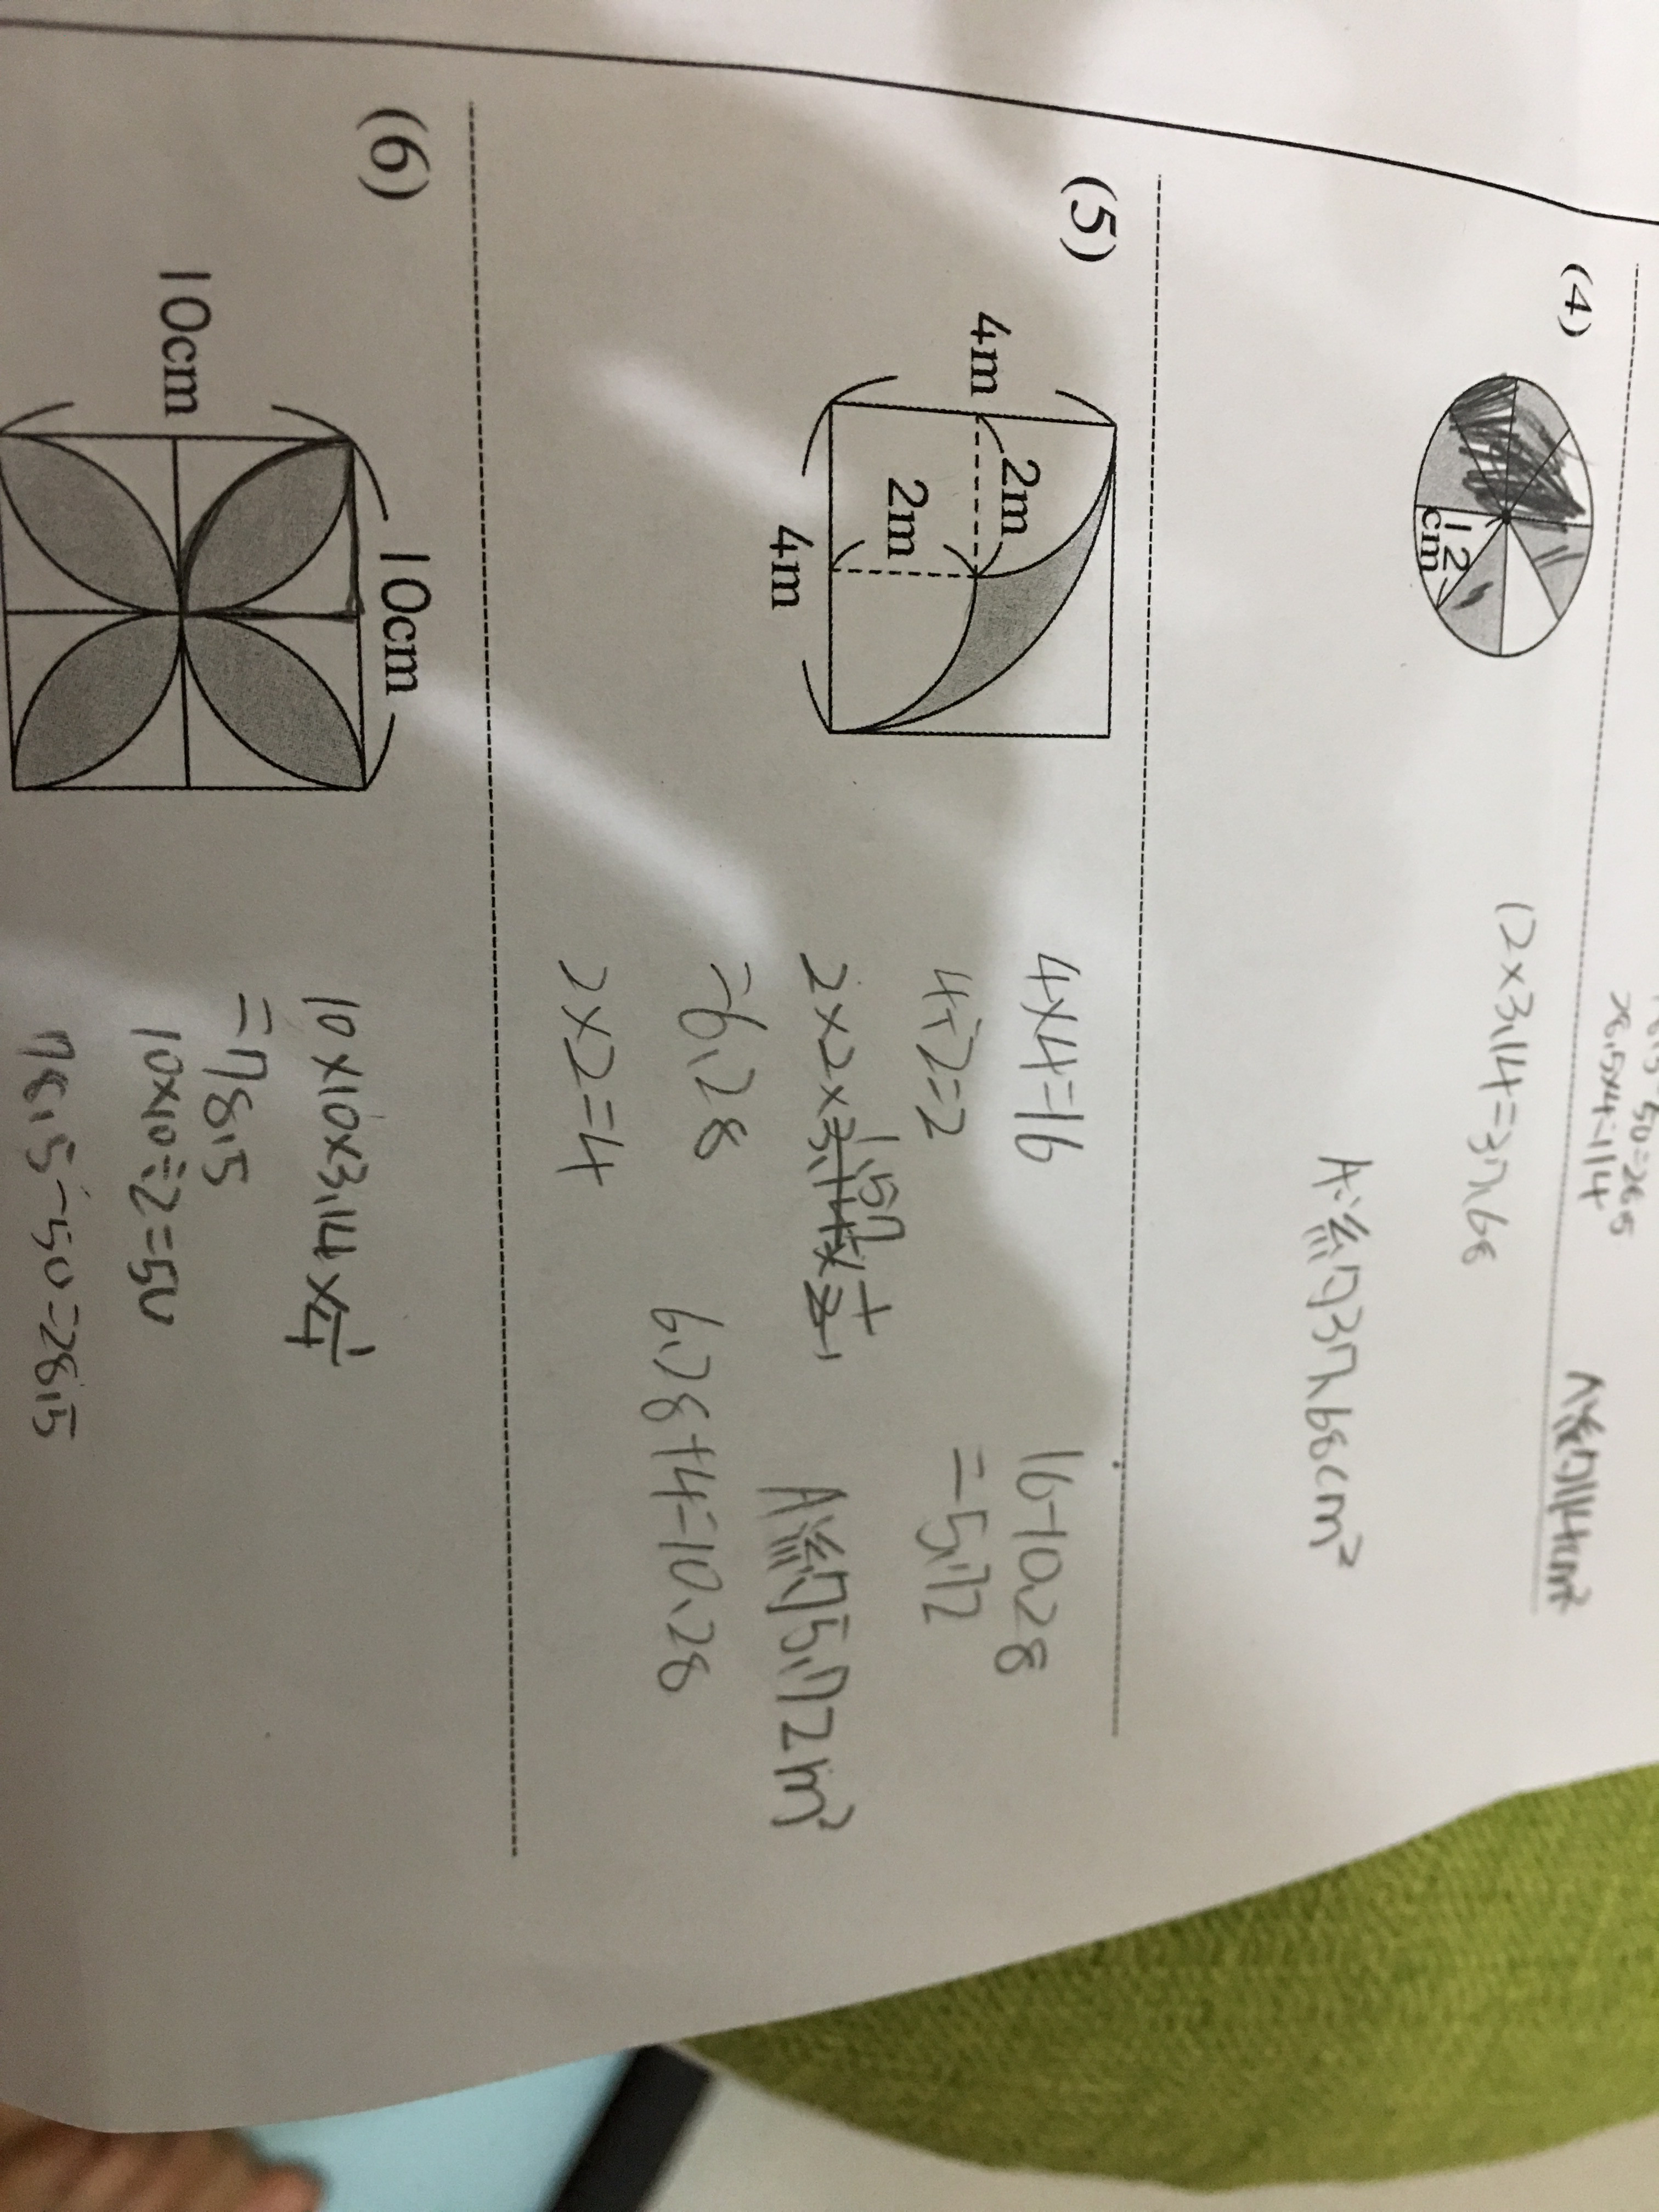 50=28.5
28.5×4=114
A:約114cm²
(4)
12
cm
12×3.14=37.68
A:約37.68cm²
(5)
4m
2m
2m
4m
4×4=16
4÷2=2
2×2×3.14×1/2
1.57
=6.28
2×2=4
6.28+4=10.28
16-10.28
=5.72
A:約5.72m²
(6)
10cm
10cm
10×10×3.14×1/4
=78.5
10×10÷2=50
78.5-50=28.5